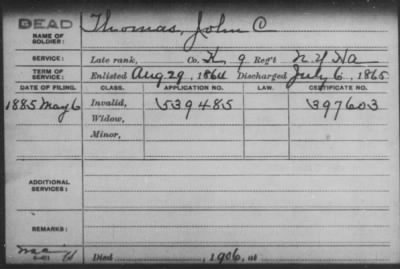 DEAD
Thomas, John C
NAME OF SOLDIER:
SERVICE: Late rank, Co. K, 9 Reg't N.Y. Ha
TERM OF SERVICE: Enlisted Aug 29, 1864 Discharged July 6, 1865
DATE OF FILING. CLASS. APPLICATION NO. LAW. CERTIFICATE NO.
1885 May 6 Invalid, 539485 397603
Widow,
Minor,
ADDITIONAL SERVICES:
REMARKS:
Died , 1906, at